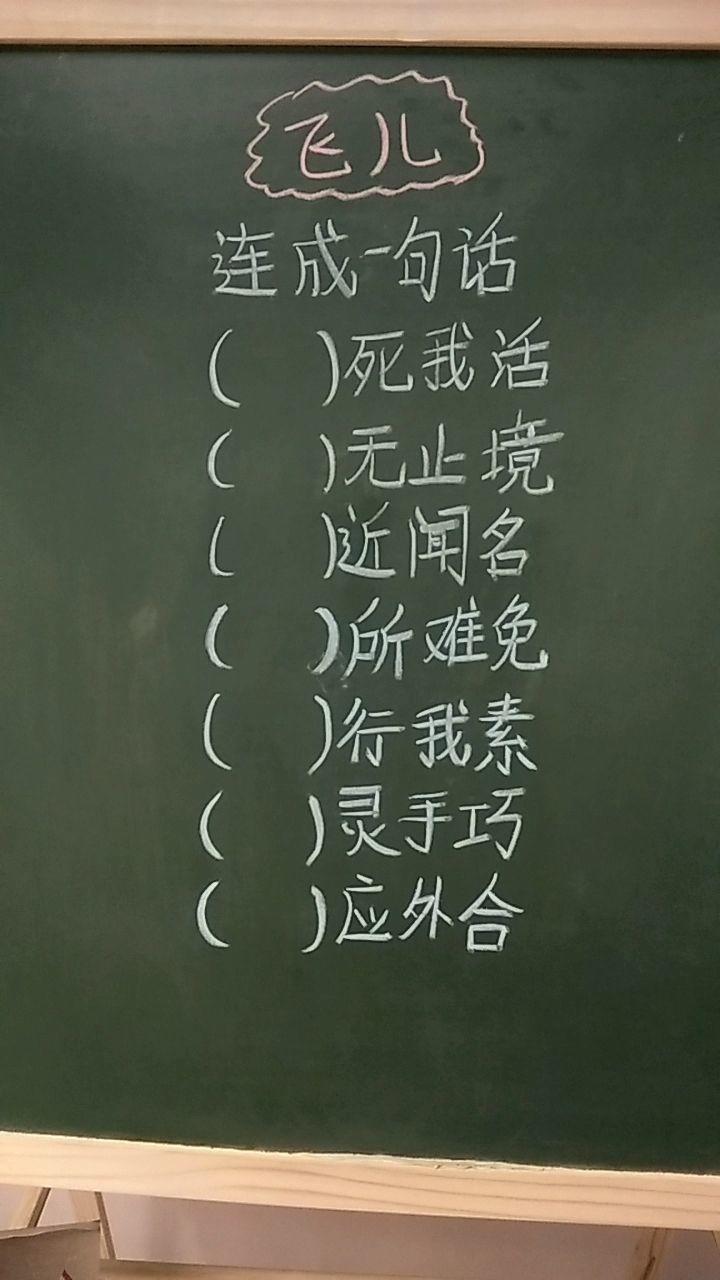 飞儿
连成一句话
(　　)死我活
(　　)无止境
(　　)近闻名
(　　)所难免
(　　)行我素
(　　)灵手巧
(　　)应外合